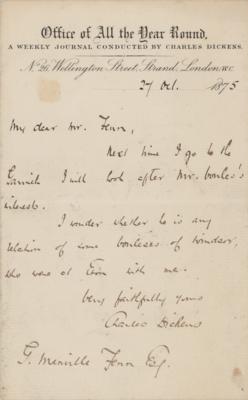 Office of All the Year Round,
A WEEKLY JOURNAL CONDUCTED BY CHARLES DICKENS.
No. 26, Wellington Street, Strand, London. W.C.
27 Oct. 1875
My dear Mr. Fenn,
Next time I go to the
I will look after Mr. Bowles's
interests.
I wonder whether he is any
relation of some of Windsor,
who were at Eton with me.
Very faithfully yours
Charles Dickens
G. Manville Fenn Esq.